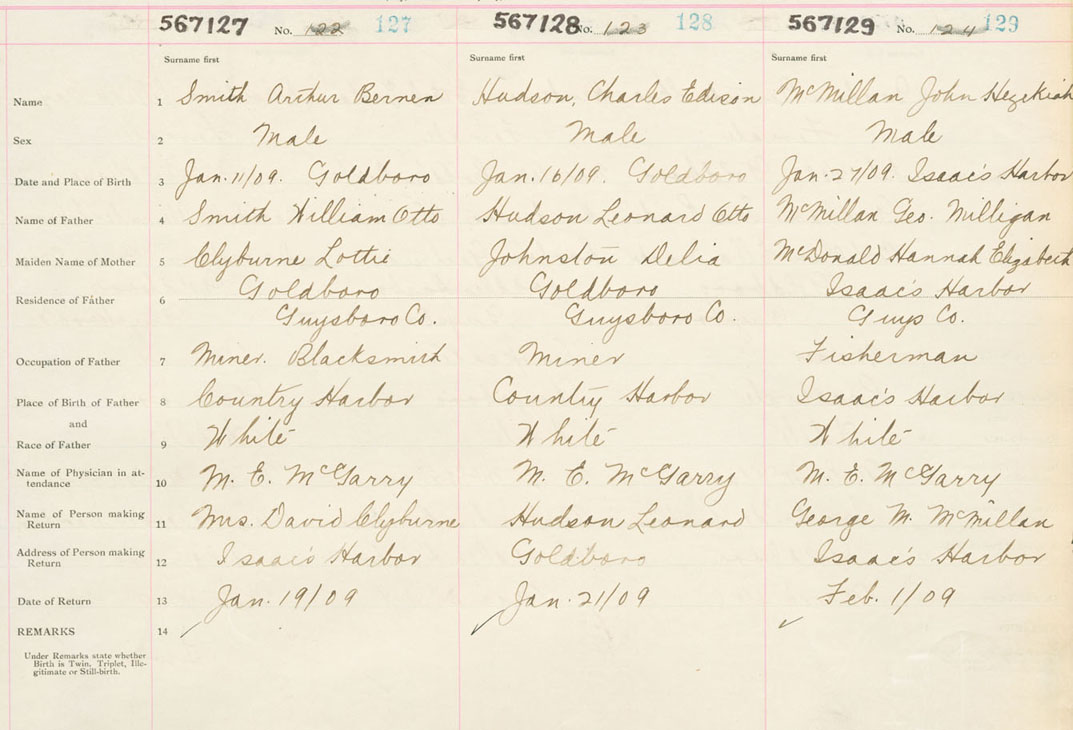 567127 No. 122 127 567128 No. 123 128 567129 No. 124 129
Surname first Surname first Surname first
Name 1 Smith Arthur Bernen Hudson, Charles Edison McMillan John Hezekiah
Sex 2 Male Male Male
Date and Place of Birth 3 Jan. 11/09. Goldboro Jan. 16/09. Goldboro Jan. 27/09. Isaac's Harbor
Name of Father 4 Smith William Otto Hudson Leonard Otto McMillan Geo. Milligan
Maiden Name of Mother 5 Clyburne Lottie Johnston Delia McDonald Hannah Elizabeth
Goldboro Goldboro Isaac's Harbor
Residence of Father 6
Guysboro Co. Guysboro Co. Guys Co.
Occupation of Father 7 Miner. Blacksmith Miner Fisherman
Place of Birth of Father 8 Country Harbor Country Harbor Isaac's Harbor
and
Race of Father 9 White White White
Name of Physician in at-
tendance 10 M. E. McGarry M. E. McGarry M. E. McGarry
Name of Person making
Return 11 Mrs. David Clyburne Hudson Leonard George M. McMillan
Address of Person making
Return 12 Isaac's Harbor Goldboro Isaac's Harbor
Date of Return 13 Jan. 19/09 Jan. 21/09 Feb. 1/09
REMARKS 14
Under Remarks state whether
Birth is Twin, Triplet, Ille-
gitimate or Still-birth.